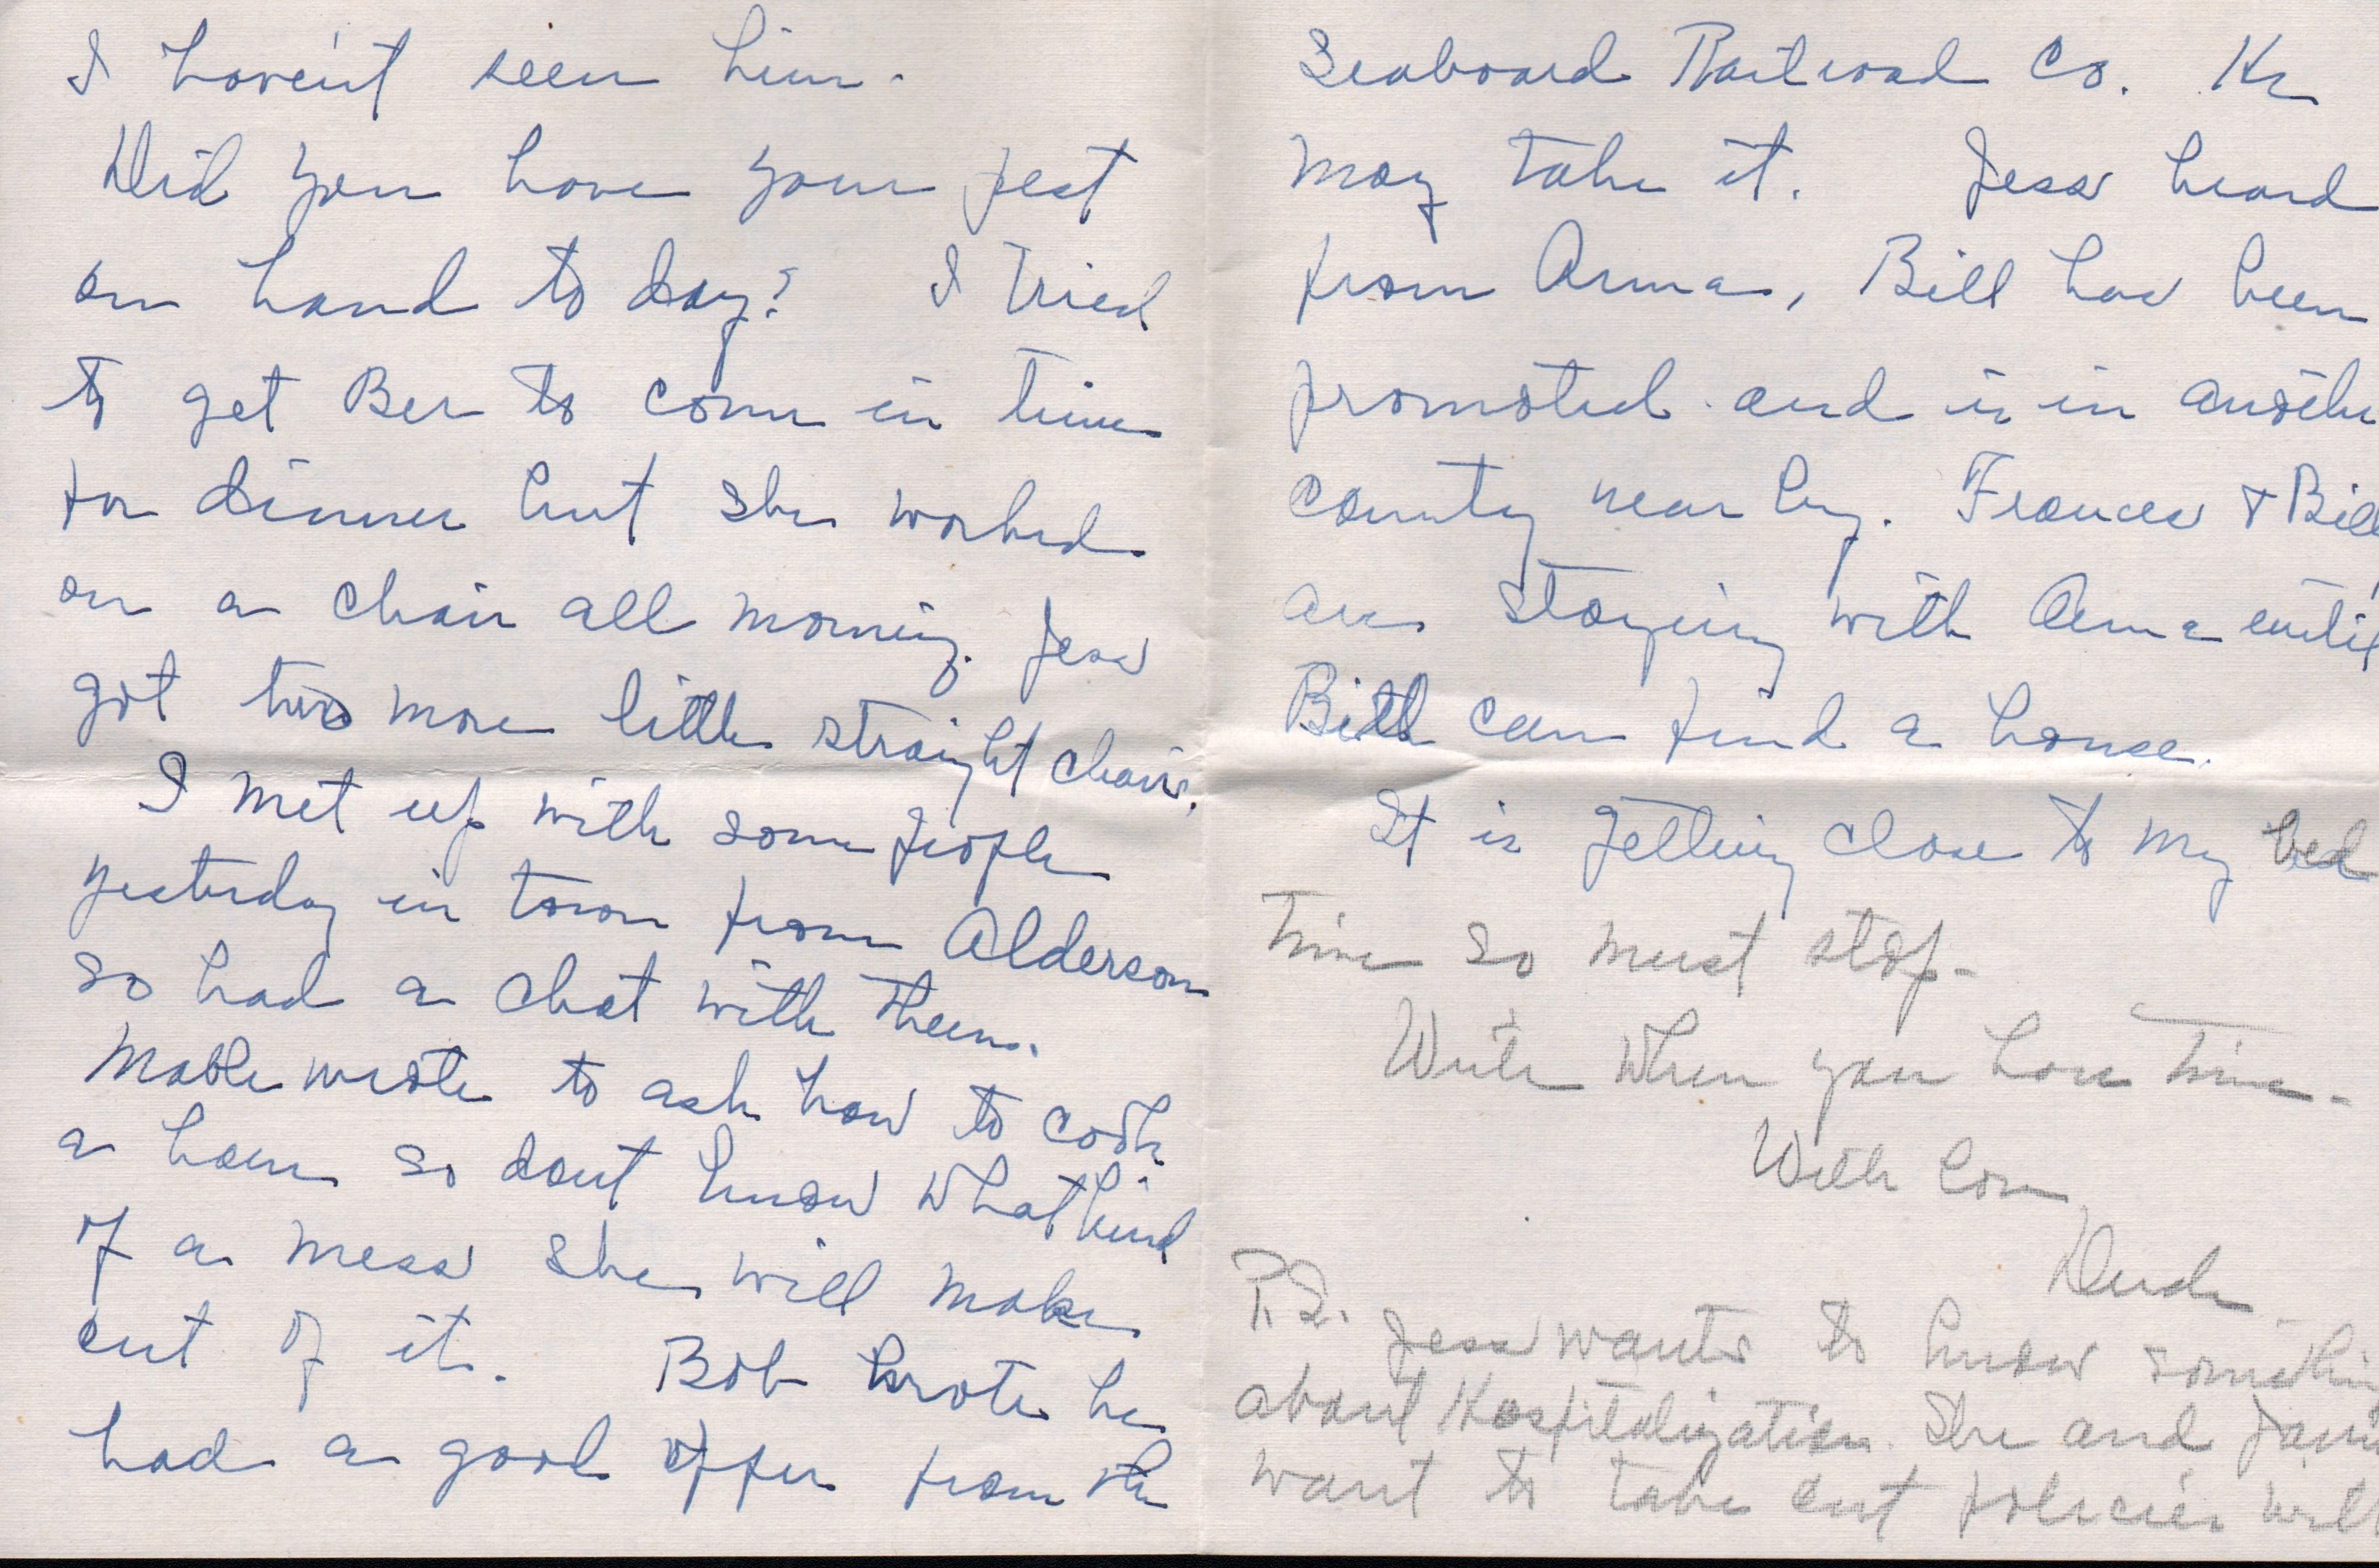 I haven't seen him.
Did you have your pest
on hand to day? I tried
to get Ber to come in time
for dinner but she worked
on a chair all morning. Jess
got two more little straight chairs.
I met up with some people
yesterday in town from Alderson
so had a chat with them.
Mable wrote to ask how to cook
a ham so dont know what kind
of a mess she will make
out of it. Bob wrote he
had a good offer from the
Seaboard Railroad Co. He
may take it. Jess heard
from Anna, Bill has been
promoted and is in another
county near by. Frances & Bill
are staying with Anna until
Bill can find a house.
It is getting close to my bed
time so must stop-
Write when you have time.
With love
P.S. Jess wants to know something
about Hospitalization. She and
want to take out policies will